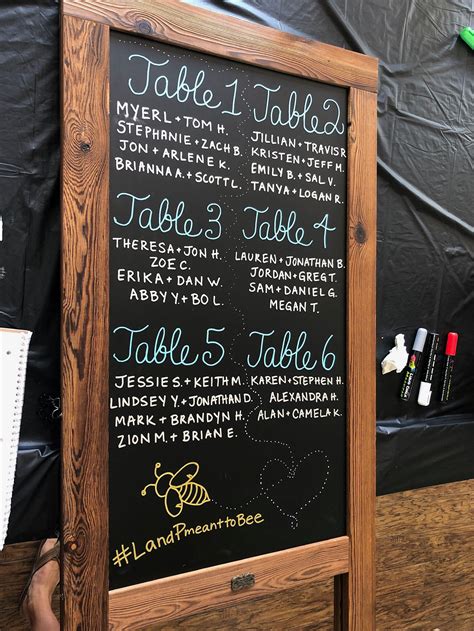 Table 1
MYERL + TOM H.
STEPHANIE + ZACH B.
JON + ARLENE K.
BRIANNA A. + SCOTT L.
Table 2
JILLIAN + TRAVIS R
KRISTEN + JEFF M.
EMILY B. + SAL V.
TANYA + LOGAN R.
Table 3
THERESA + JON H.
ZOE C.
ERIKA + DAN W.
ABBY Y. + BO L.
Table 4
LAUREN + JONATHAN B.
JORDAN + GREG T.
SAM + DANIEL G.
MEGAN T.
Table 5
JESSIE S. + KEITH M.
LINDSEY Y. + JONATHAN D.
MARK + BRANDYN H.
ZION M. + BRIAN E.
Table 6
KAREN + STEPHEN H.
ALEXANDRA H.
ALAN + CAMELA K.
#LandPmeanttoBee